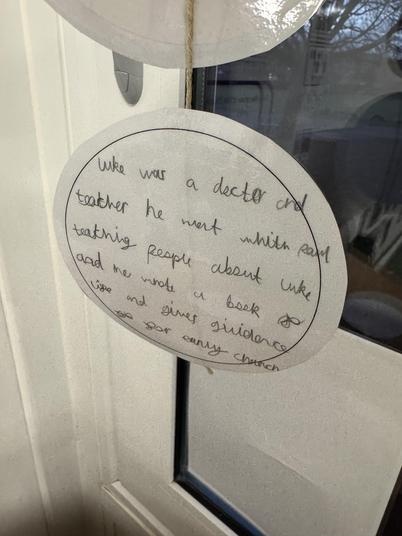 Luke was a doctor and
teatcher he went whith paul
teathing people about luke
and he wrote a book
life and gives guidence
for earny chanch